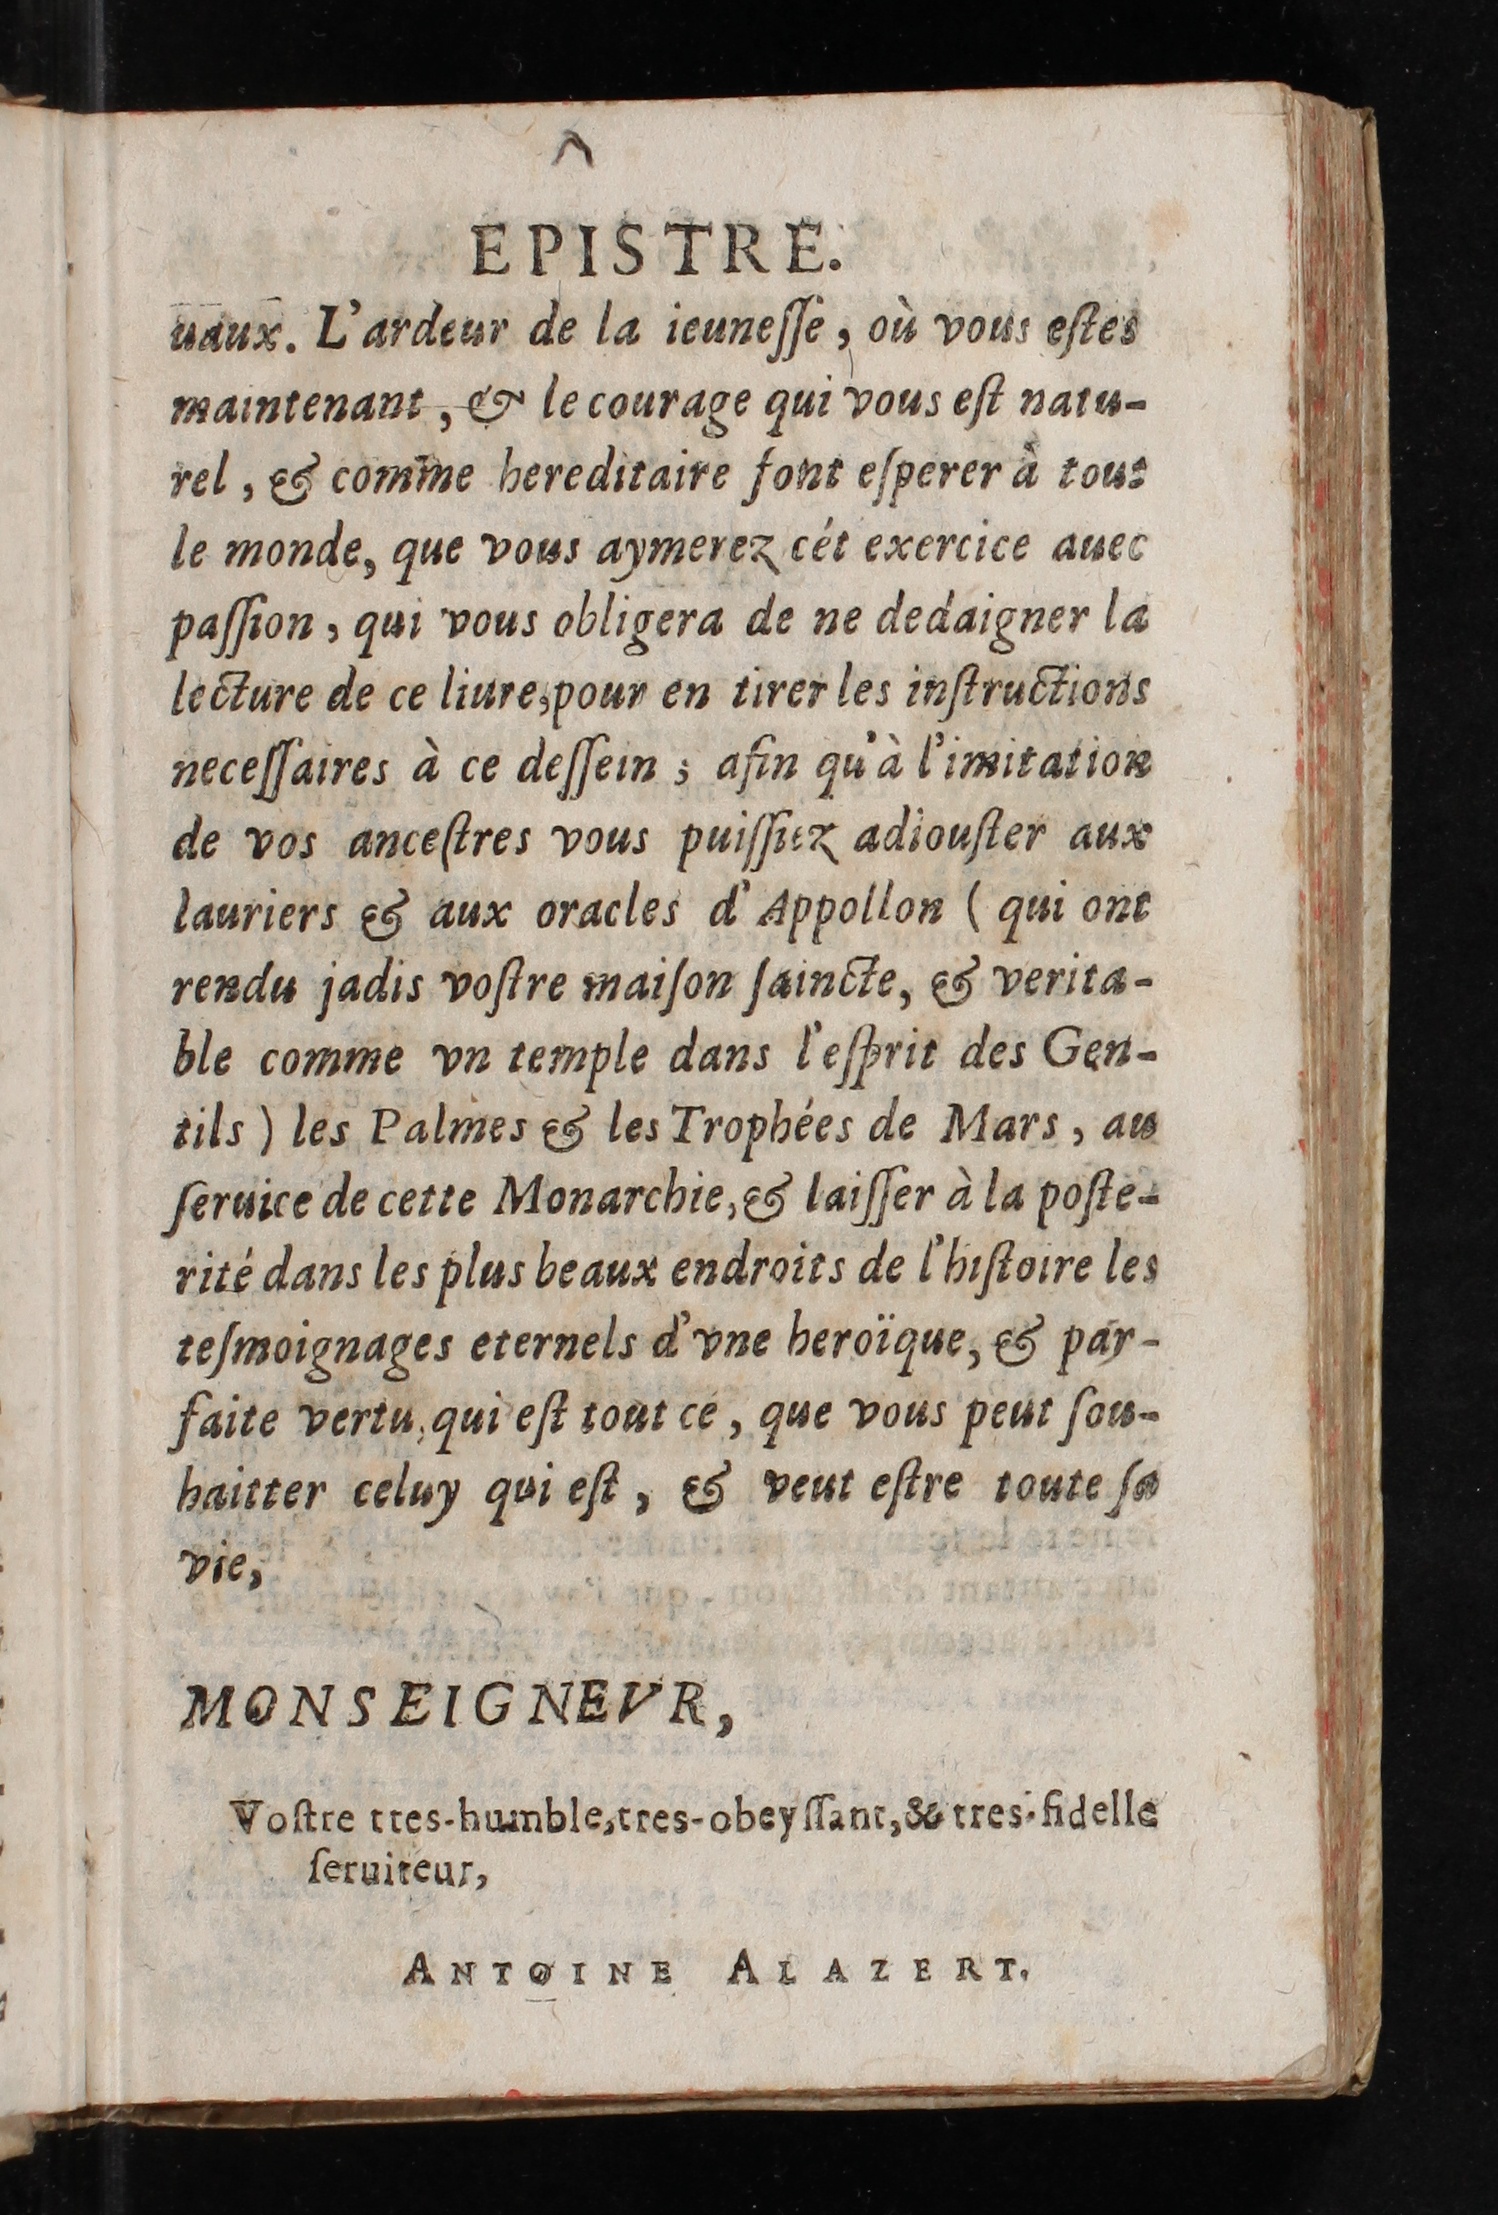 EPISTRE.
uaux. L'ardeur de la ieuneſſe, où vous eſtes
maintenant, & le courage qui vous eſt natu-
rel, & comme hereditaire font eſperer à tout
le monde, que vous aymerez cét exercice auec
paſſion, qui vous obligera de ne dedaigner la
lecture de ce liure, pour en tirer les inſtructions
neceſſaires à ce deſſein; afin qu'à l'imitation
de vos anceſtres vous puiſſiez adiouſter aux
lauriers & aux oracles d'Appollon ( qui ont
rendu jadis voſtre maiſon ſaincte, & verita-
ble comme vn temple dans l'eſprit des Gen-
tils ) les Palmes & les Trophées de Mars, au
ſeruice de cette Monarchie, & laiſſer à la poſte-
rité dans les plus beaux endroits de l'hiſtoire les
teſmoignages eternels d'vne heroïque, & par-
faite vertu, qui eſt tout ce, que vous peut ſou-
haitter celuy qui eſt, & veut eſtre toute ſa
vie,
MONSEIGNEVR,
Voſtre tres-humble, tres-obeyſſant, & tres-fidelle
ſeruiteur,
ANTOINE ALAZERT.